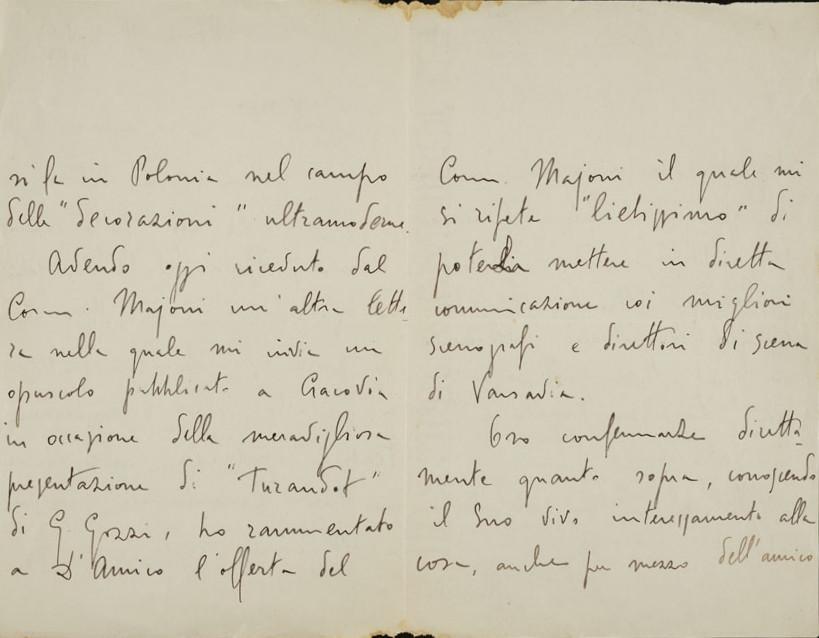 si fa in Polonia nel campo
delle "decorazioni" ultramoderne.
Avendo oggi ricevuto dal
Comm. Majoni un'altra lette-
ra nella quale mi invia un
opuscolo pubblicato a Cracovia
in occasione della meravigliosa
presentazione di "Turandot"
di G. Gozzi, ho rammentato
a D'Amico l'offerta del
Comm. Majoni il quale mi
si ripete "lietissimo" di
poterLa mettere in diretta
comunicazione coi migliori
scenografi e direttori di scena
di Varsavia.
confermarLe diretta-
mente quanto sopra, conoscendo
il Suo vivo interessamento alla
cosa, anche per mezzo dell'amico